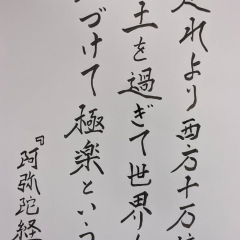 これより西方十万億
土を過ぎて世界
づけて極楽という
『阿弥陀経